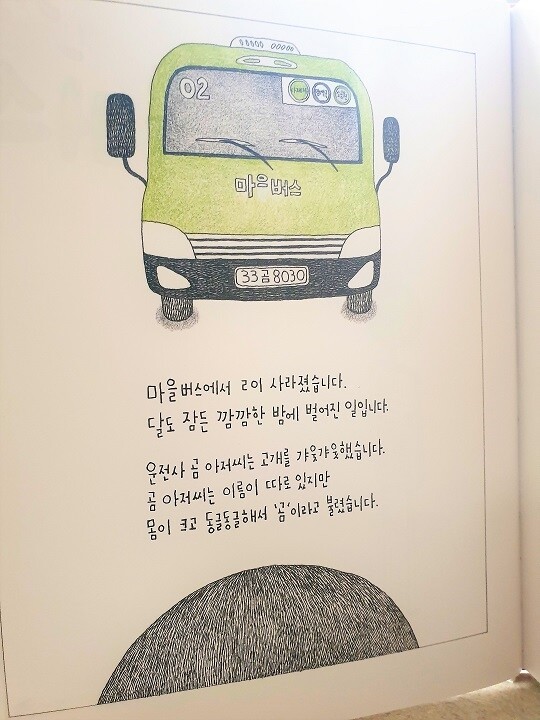 02
마으버스
33곰8030
마을버스에서 ㄹ이 사라졌습니다.
달도 잠든 깜깜한 밤에 벌어진 일입니다.
운전사 곰 아저씨는 고개를 갸웃갸웃했습니다.
곰 아저씨는 이름이 따로 있지만
몸이 크고 동글동글해서 '곰'이라고 불렸습니다.